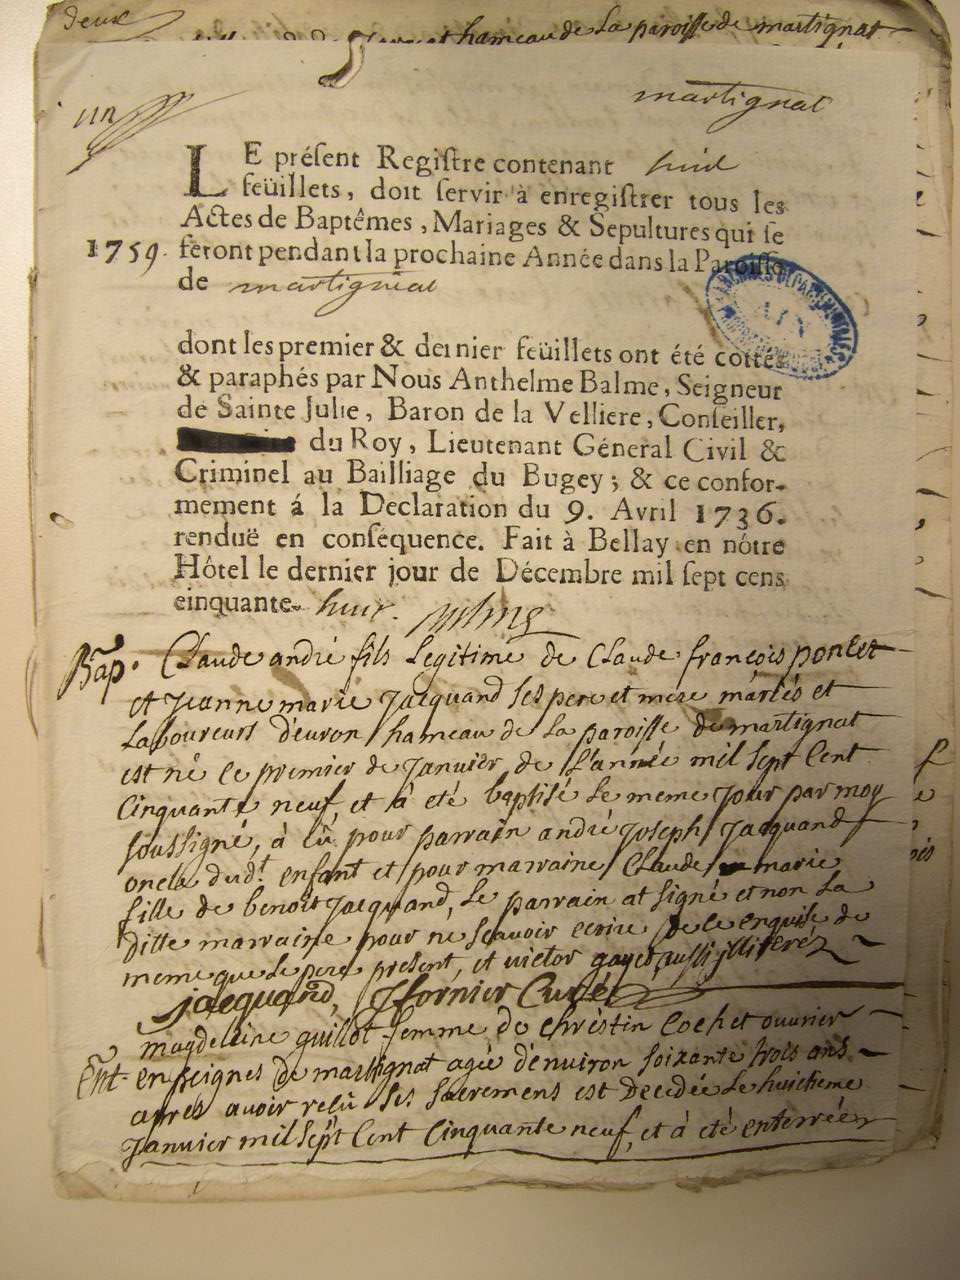 deux
hameau de La paroisse de martignat
un
martignat
LE présent Registre contenant huit
feüillets, doit servir à enregistrer tous les
Actes de Baptêmes, Mariages & Sepultures qui se
1759. feront pendant la prochaine Année dans la Paroisse
de martignat
dont les premier & dernier feüillets ont été cottés
& paraphés par Nous Anthelme Balme, Seigneur
de Sainte Julie, Baron de la Velliere, Conseiller,
du Roy, Lieutenant Géneral Civil &
Criminel au Bailliage du Bugey; & ce confor-
mement á la Declaration du 9. Avril 1736.
renduë en conséquence. Fait à Bellay en nôtre
Hôtel le dernier jour de Décembre mil sept cens
cinquante- huit. Balme
Bap. Claude andré fils Legitime de Claude françois poncet
et Jeanne marie Jacquand ses pere et mere mariés et
Laboureurs d'euron hameau de La paroisse de martignat
est né Le premier de Janvier de L'année mil sept Cent
Cinquante neuf, et à eté baptisé Le meme Jour par moy
soussigné, à Eû pour parrain andré Joseph Jacquand
oncle dudt. enfant et pour marraine Claude marie
fille de benoit Jacquand, Le parrain at signé et non La
ditte marraine pour ne scavoir ecrire de ce enquise de
meme que Le pere present, et victor gayet aussi illiteré
jacquand, Fornier Curé
magdeleine guillot femme de Christin Cochet ouvrier
Ent. en peignes de martignat agée d'enuiron soixante trois ans
apres avoir reçû ses sacremens est Decedée Le huictieme
Janvier mil sept Cent Cinquante neuf, et à eté enterrée
ARCHIVES DÉPARTEMENTALES
AIN